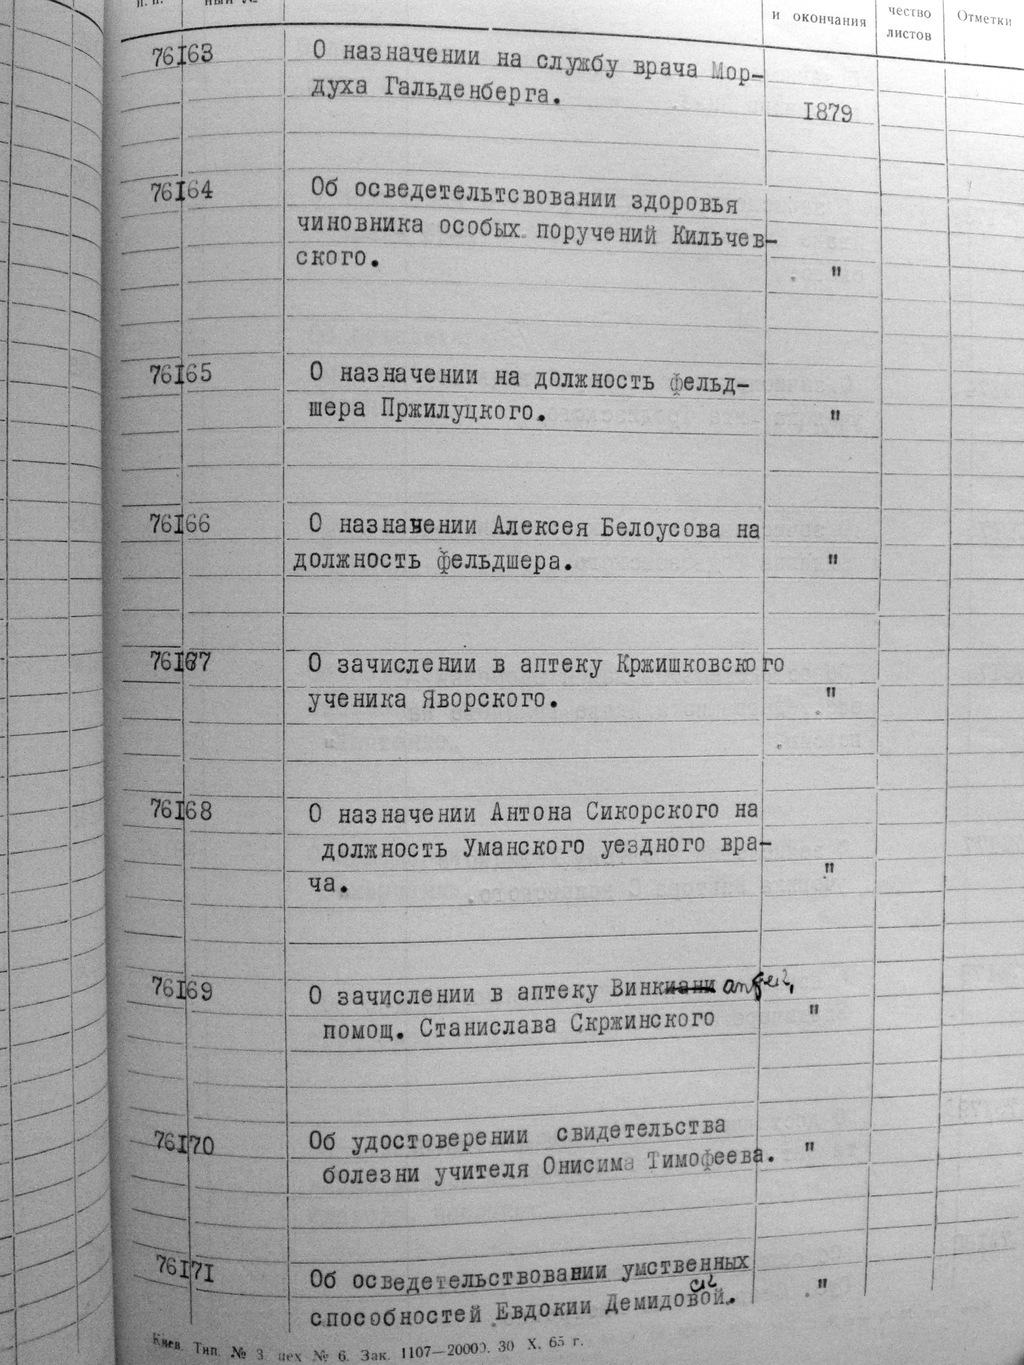 п. п.
ный №
и окончания
чество
листов
Отметки
76I63
О назначении на службу врача Мор-
духа Гальденберга.
I879
76I64
Об осведетельтсвовании здоровья
чиновника особых поручений Кильчев-
ского.
"
76I65
О назначении на должность фельд-
шера Пржилуцкого.
"
76I66
О назначении Алексея Белоусова на
должность фельдшера.
"
76I67
О зачислении в аптеку Кржишковского
ученика Яворского.
"
76I68
О назначении Антона Сикорского на
должность Уманского уездного вра-
ча.
"
76I69
О зачислении в аптеку Винкиани
помощ. Станислава Скржинского
"
76I70
Об удостоверении свидетельства
болезни учителя Онисима Тимофеева.
"
76I7I
Об осведетельствовании умственных
способностей Евдокии Демидовой.
"
Киев. Тип. № 3 цех № 6. Зак. 1107—20000. 30 X. 65 г.